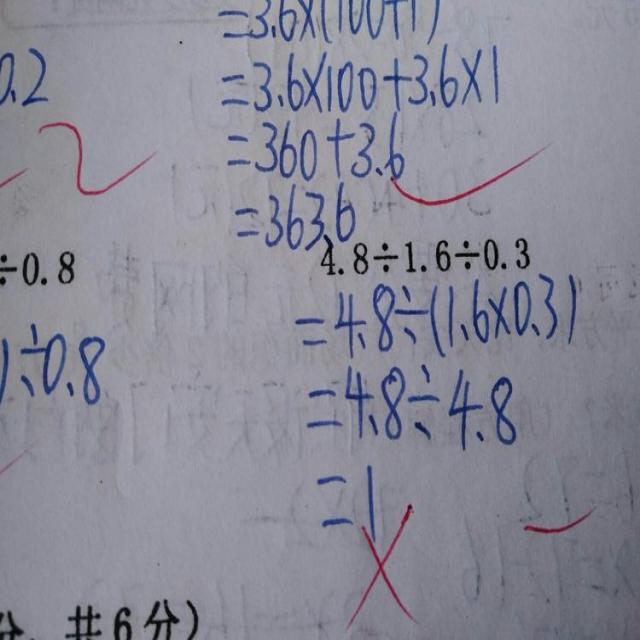 =3.6×(100+1)
0.2
=3.6×100+3.6×1
=360+3.6
=363.6
÷0.8
4.8÷1.6÷0.3
=4.8÷(1.6×0.3)
)÷0.8
=4.8÷4.8
=1
分,共6分)